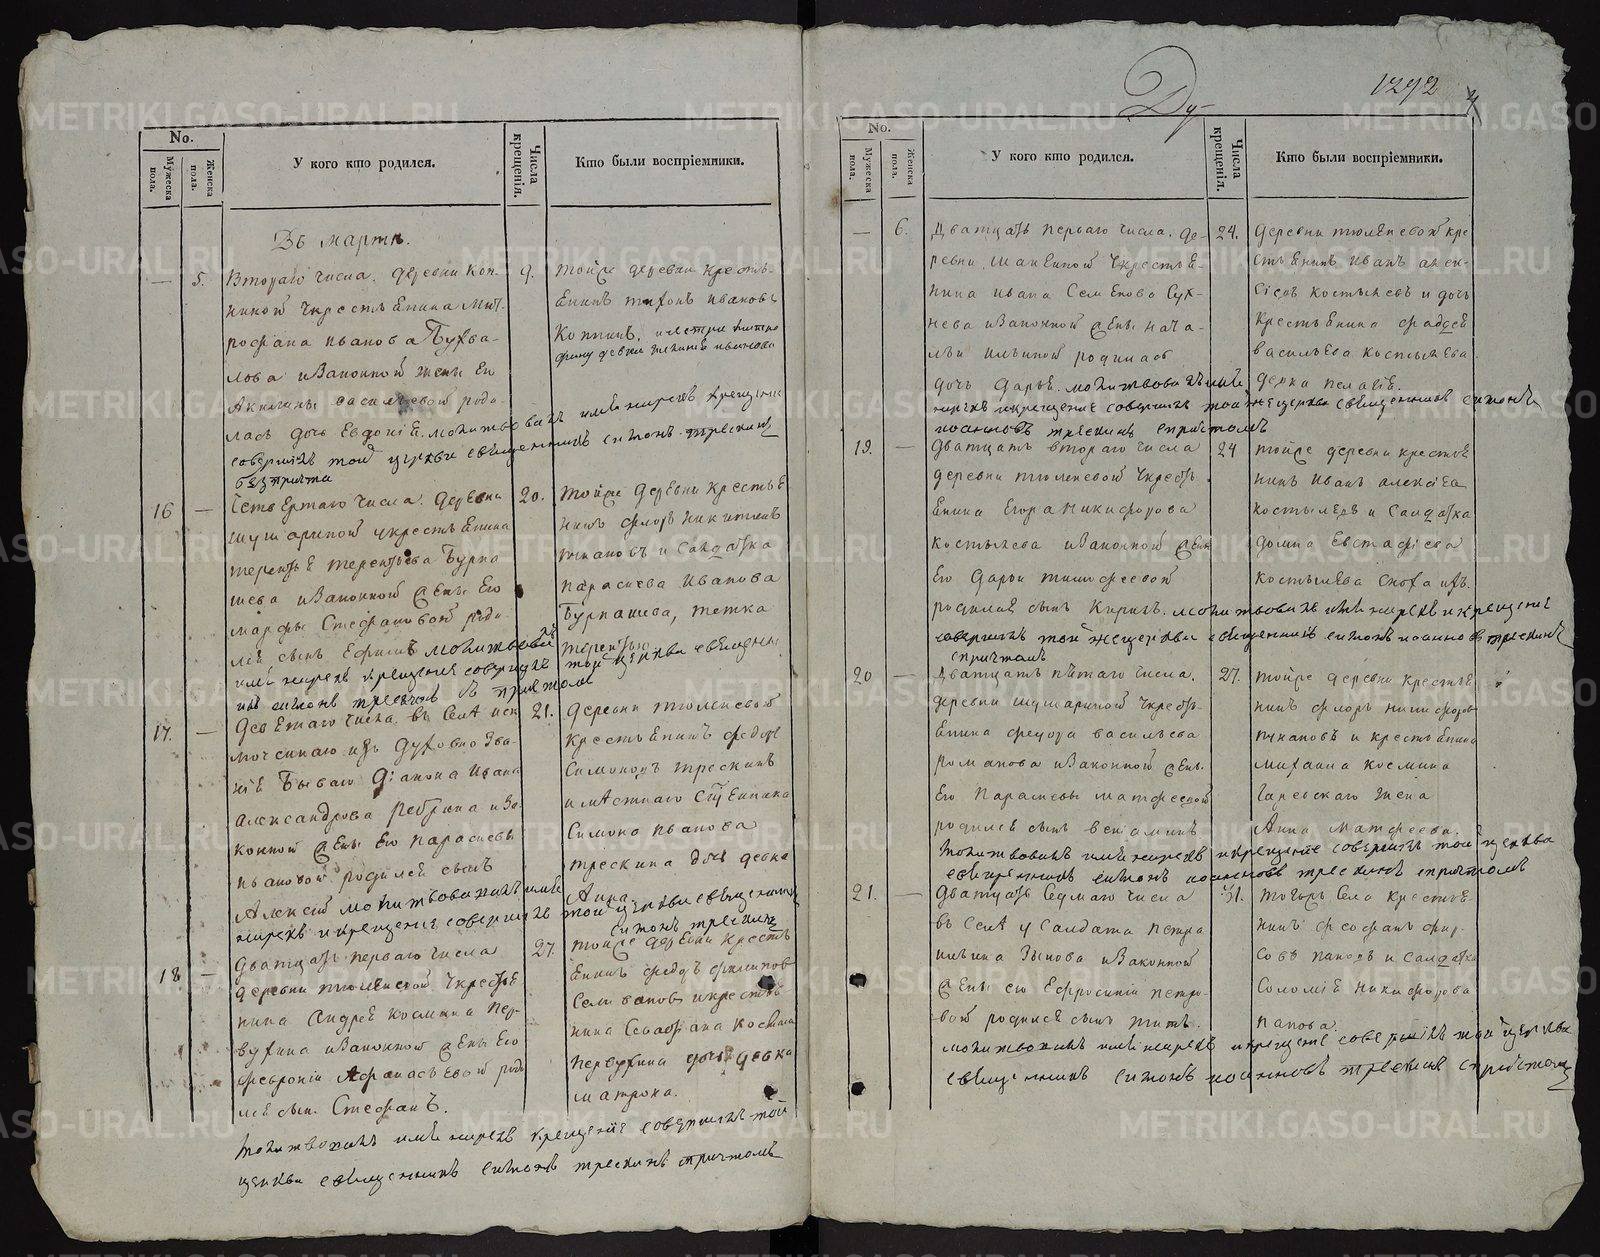 No.
Мужеска пола.
Женска пола.
У кого кто родился.
Числа крещенія.
Кто были воспріемники.
Въ Мартѣ.
5.
Втораго числа. деревни Коп-
ниной Укрестьенина Мит-
рофана иванова
лова иЗаконной жены Ео
васильевой роди-
лась дочь Евдокія. молитвовалъ имя нарекъ крещение
совершилъ той церкви священникъ симонъ трескинъ
безпричта
9.
Тойже деревни кресть-
енинъ тихонъ ивановъ
Копнинъ.
16
Четвертаго числа. деревни
шушариной укрестьенина
терентье терентьева Бурна
шева иЗаконной жены Его
марфы Стефановой роди-
лся сынъ Ефимъ молитвовалъ
имя нарекъ крещение совершилъ той церкви священни
къ симонъ трескинъ с причтом
20.
Тойже деревни крестье
нинъ флоръ никитинъ
пупановъ и Салдатка
параскева Иванова
Бурнашева, тетка
терентью
17.
Девятаго числа. въ Селѣ
изъ духовнозва-
ніе бываго Діакона Ивана
Александрова Ребрина иЗа-
конной жены Его Параскевы
ивановой родился сынъ
Алексій молитвовалъ имя
нарекъ и крещение совершилъ той церкви священникъ
симонъ трескинъ
21.
деревни тюленевой
крестьенинъ федоръ
Симоновъ трескинъ
имѣстнаго Священника
Симона иванова
трескина дочь девка
Анна.
18
дватцать перваго числа
деревни тюленевой Укрестье
нина Андрея космина Пер-
вухина иЗаконной жены Его
февроніи Афанасьевой роди
лся сынъ Стефанъ.
молитвовалъ имя нарекъ крещение совершилъ той
церкви священникъ симонъ трескинъ спричтомъ
27.
тойже деревни кресть
енинъ федоръ филипов
Селивановъ икрестье
нина Севастіана Космина
Первухина дочь девка
матрона.
1292
No.
Мужеска пола.
Женска пола.
У кого кто родился.
Числа крещенія.
Кто были воспріемники.
6.
Дватцать перваго числа. де-
ревни Шавкиной Укрестье-
нина ивана Семенова Сух-
нева иЗаконной жены ната-
льи ильиной родилась
дочь дарья. молитвовалъ имя
нарекъ икрещение совершилъ тойже церкви священникъ симонъ
иоанновъ трескинъ спричтомъ
24.
деревни тюленевой кре
стьенинъ иванъ алек-
сіевъ костылевъ и дочь
крестьенина фаддея
васильева костылева
девка пелагія.
19.
дватцать втораго числа
деревни тюленевой Укресть-
енина Егора Никифорова
Костылева иЗаконной жены
Его дарьи тимофеевой
родился сынъ Кирилъ. молитвовалъ имя нарекъ и крещение
совершилъ тойжецеркви священникъ симонъ иоанновъ трескинъ
спричтомъ
24
тойже деревни крестье
нинъ Иванъ алексіевъ
костылевъ и Салдатка
домна Евстафіева
Костылева сноха ихъ.
20
дватцать пятаго числа.
деревни шушариной Укресть-
енина федора васильева
романова иЗаконной жены
Его Параскевы матфеевой
родился сынъ веніаминъ
молитвовалъ имя нарекъ и крещение совершилъ той церкви
священникъ симонъ иоанновъ трескинъ спричтомъ
27.
тойже деревни крестье
нинъ флоръ никифоров
пупановъ и крестьенина
михаила космина
Гаревскаго жена
Анна матфеева.
21.
дватцать Седмаго числа
въ Селѣ у Салдата петра
ильина Зыкова иЗаконной
жены его Ефросиніи петро-
вой родился сынъ титъ.
молитвовалъ имя нарекъ и крещение совершилъ той церкви
священникъ симонъ иоанновъ трескинъ спричтомъ
31.
тогожъ Села крестье
нинъ феофанъ фир-
совъ паповъ и салдатка
Соломія Никифорова
папова.